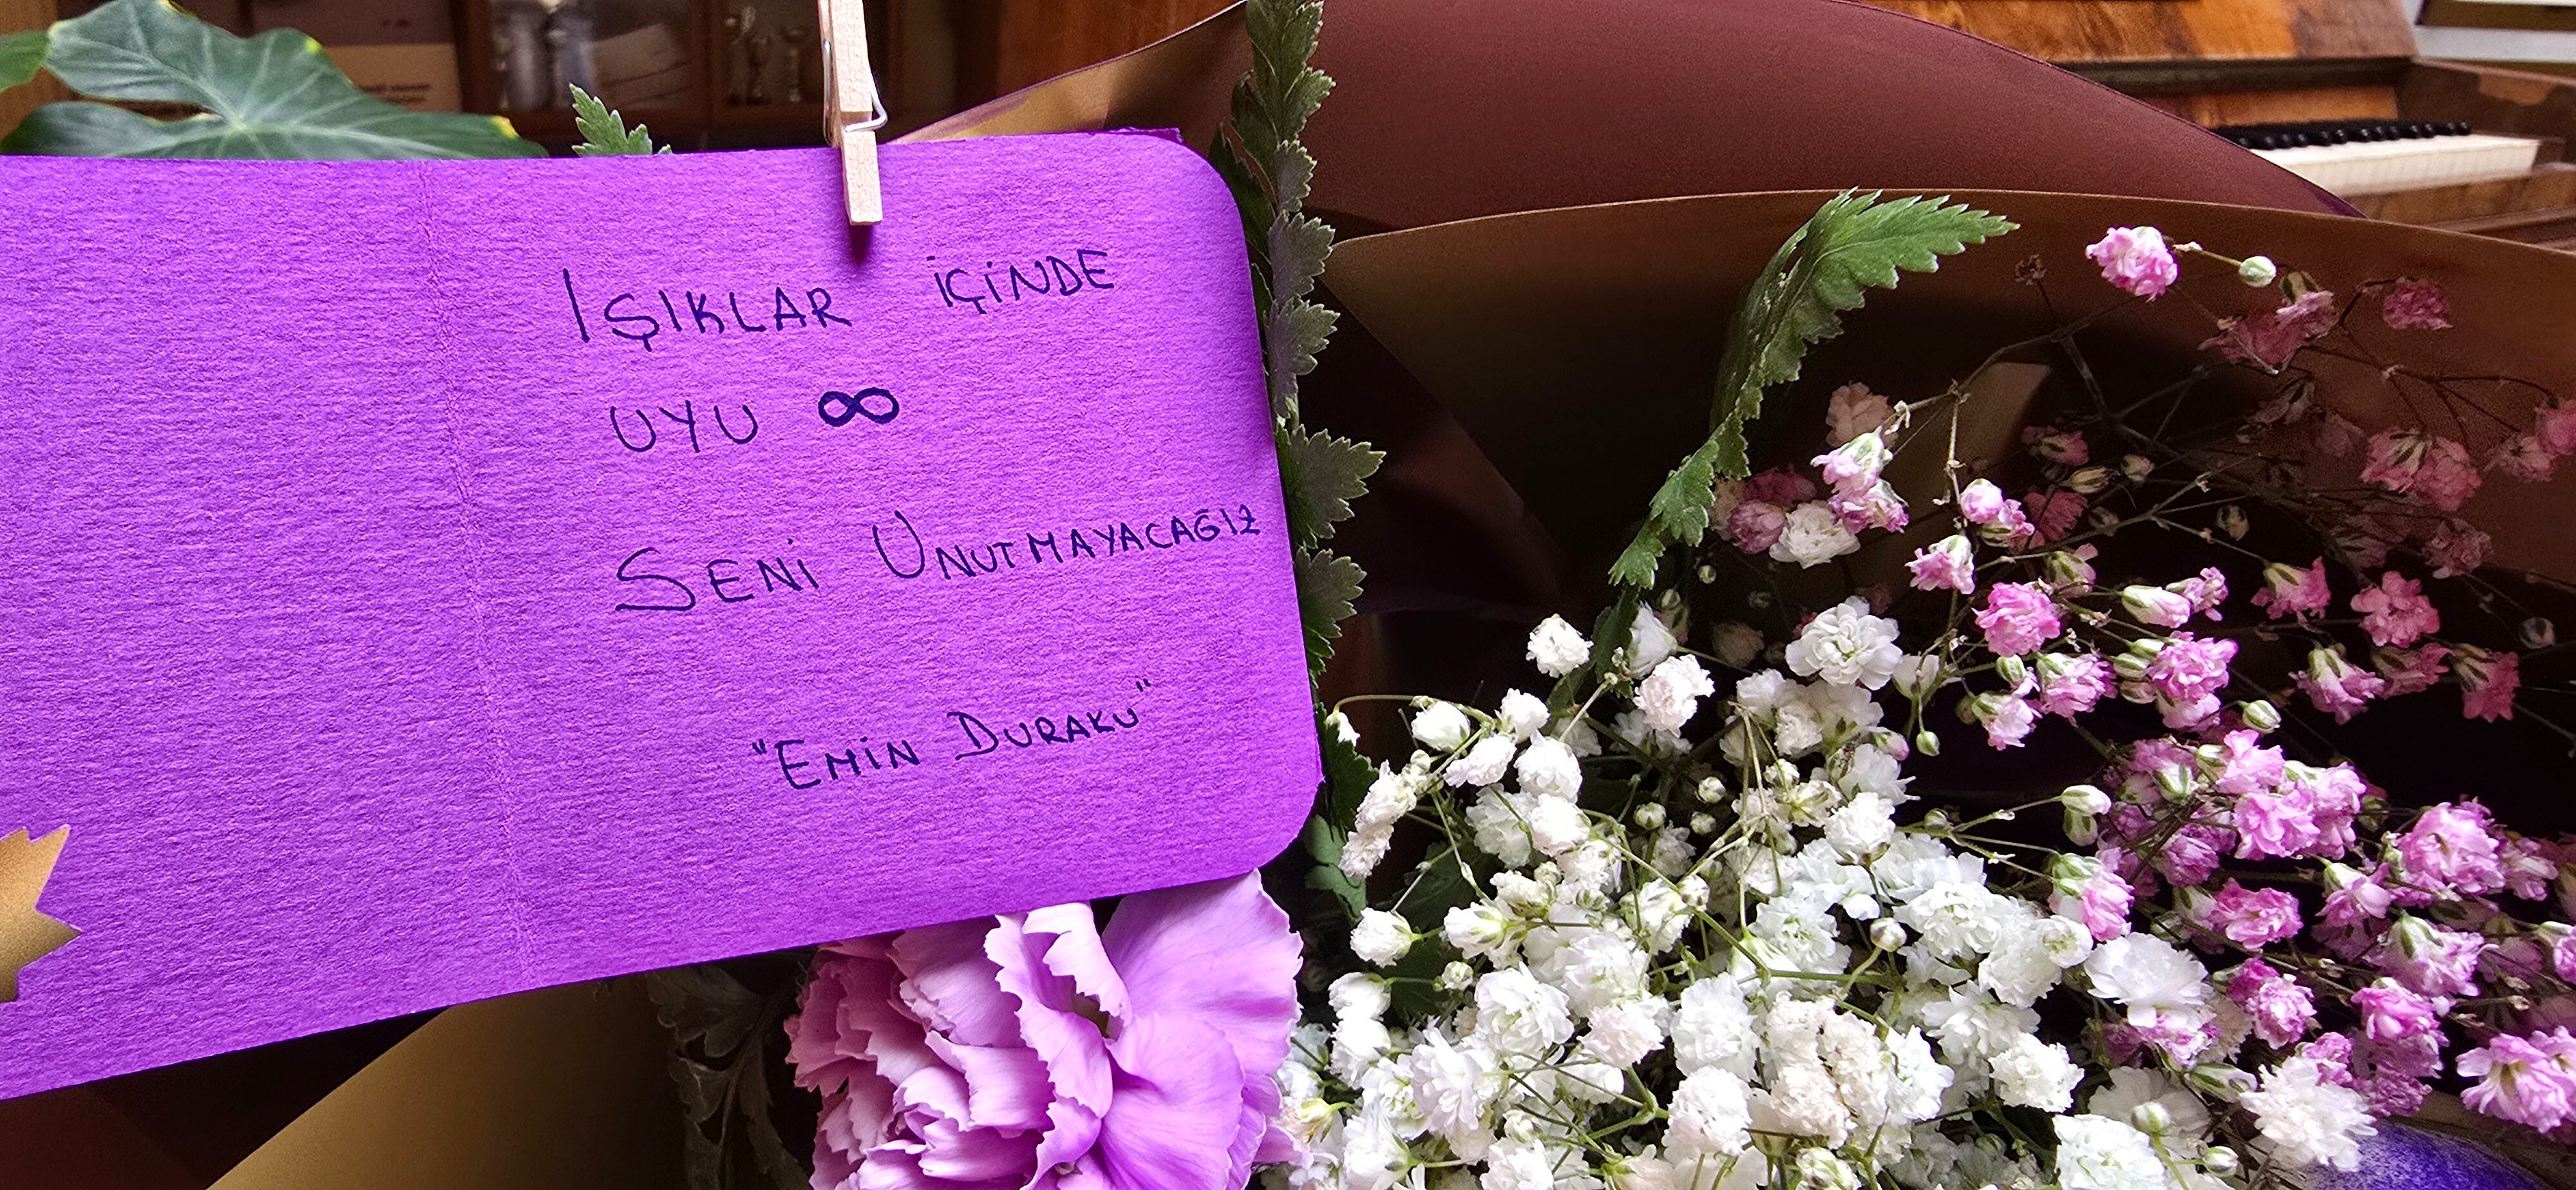 IŞIKLAR İÇİNDE
UYU ∞
SENİ UNUTMAYACAĞIZ
"EMİN DURAKU"